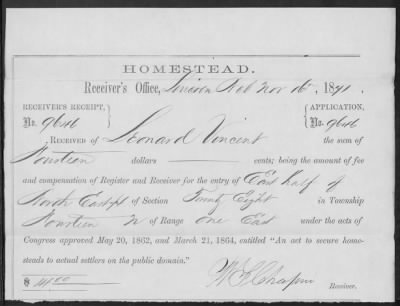 HOMESTEAD.
Receiver's Office, Lincoln Neb Nov 16th, 1871.
RECEIVER'S RECEIPT, } { APPLICATION,
No. 9646 No. 9646
RECEIVED OF Leonard Vincent the sum of
Fourteen dollars cents; being the amount of fee
and compensation of Register and Receiver for the entry of East half of
North East ¼ of Section Twenty Eight in Township
Fourteen N of Range One East under the acts of
Congress approved May 20, 1862, and March 21, 1864, entitled "An act to secure home-
steads to actual settlers on the public domain."
$ 14.00 Chapin Receiver.